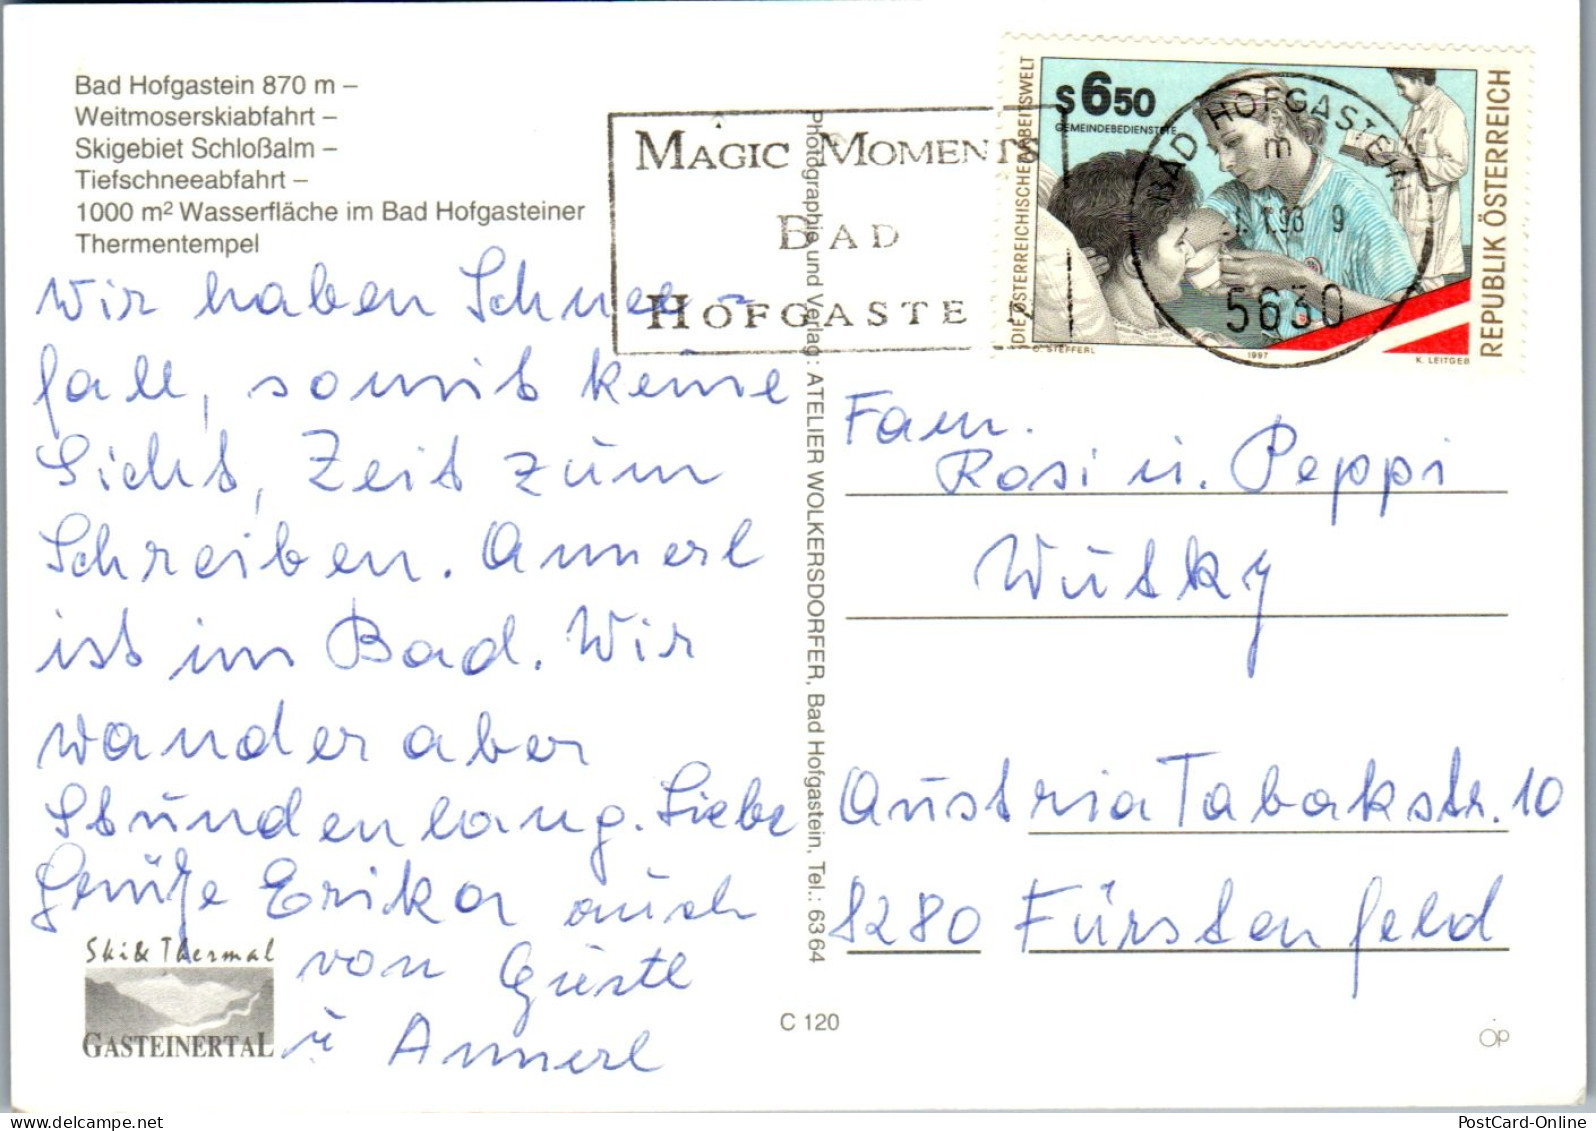 Bad Hofgastein 870 m –
Weitmoserskiabfahrt –
Skigebiet Schloßalm –
Tiefschneeabfahrt –
1000 m² Wasserfläche im Bad Hofgasteiner
Thermentempel
Wir haben Schnee-
fall, somit keine
Sicht, Zeit zum
Schreiben. Annerl
ist im Bad. Wir
wander aber
Stundenlang. Liebe
Grüße Erika auch
von Gustl
u Annerl
Ski & Thermal
GASTEINERTAL
MAGIC MOMENTS
BAD
HOFGASTE
Photographie und Verlag: ATELIER WOLKERSDORFER, Bad Hofgastein, Tel.: 6364
C 120
DIE ÖSTERREICHISCHE ARBEITSWELT
S 650
GEMEINDEBEDIENSTETE
REPUBLIK ÖSTERREICH
O. STEFFERL
1997
K. LEITGEB
BAD HOFGASTEIN
m
98 9
5630
Fam.
Rosi u. Peppi
Wutky
Austria Tabakstr. 10
8280 Fürstenfeld
ÖP
PostCard-Online